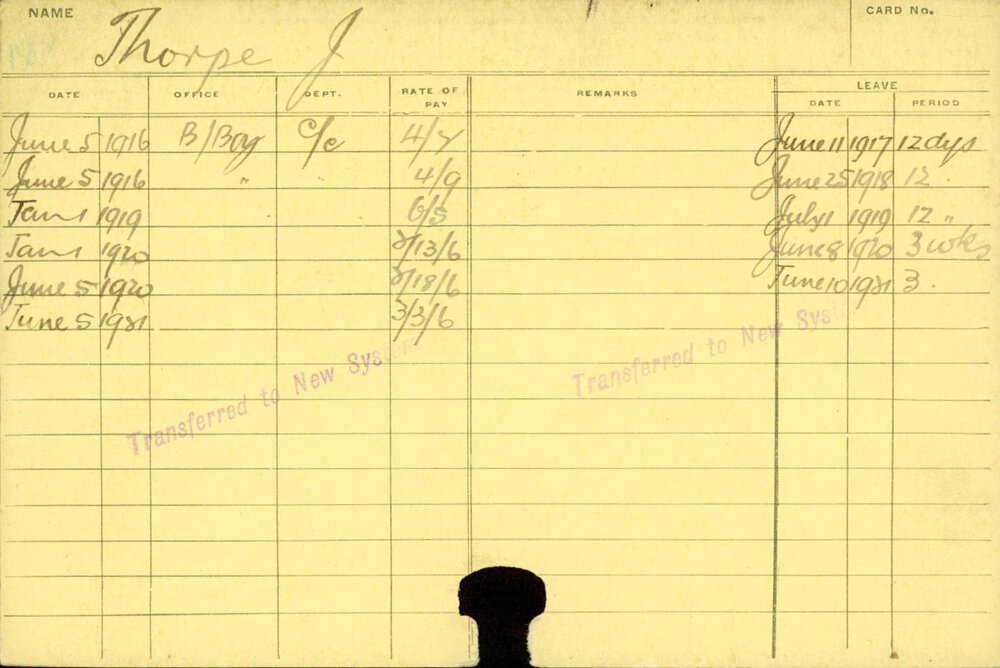 NAME
CARD No.
Thorpe J
DATE OFFICE DEPT. RATE OF PAY REMARKS LEAVE
DATE PERIOD
June 5 1916 B/Boy C/C June 11 1917 12 dys
June 5 1916 " 4/9 June 25 1918 12
Jan 1 1919 6/5 July 1 1919 12 "
Jan 1 1920 2/13/6 June 8 1920 3 wks
June 5 1920 2/18/6 June 10 1921 3.
June 5 1921 3/3/6
Transferred to New System
Transferred to New Syst